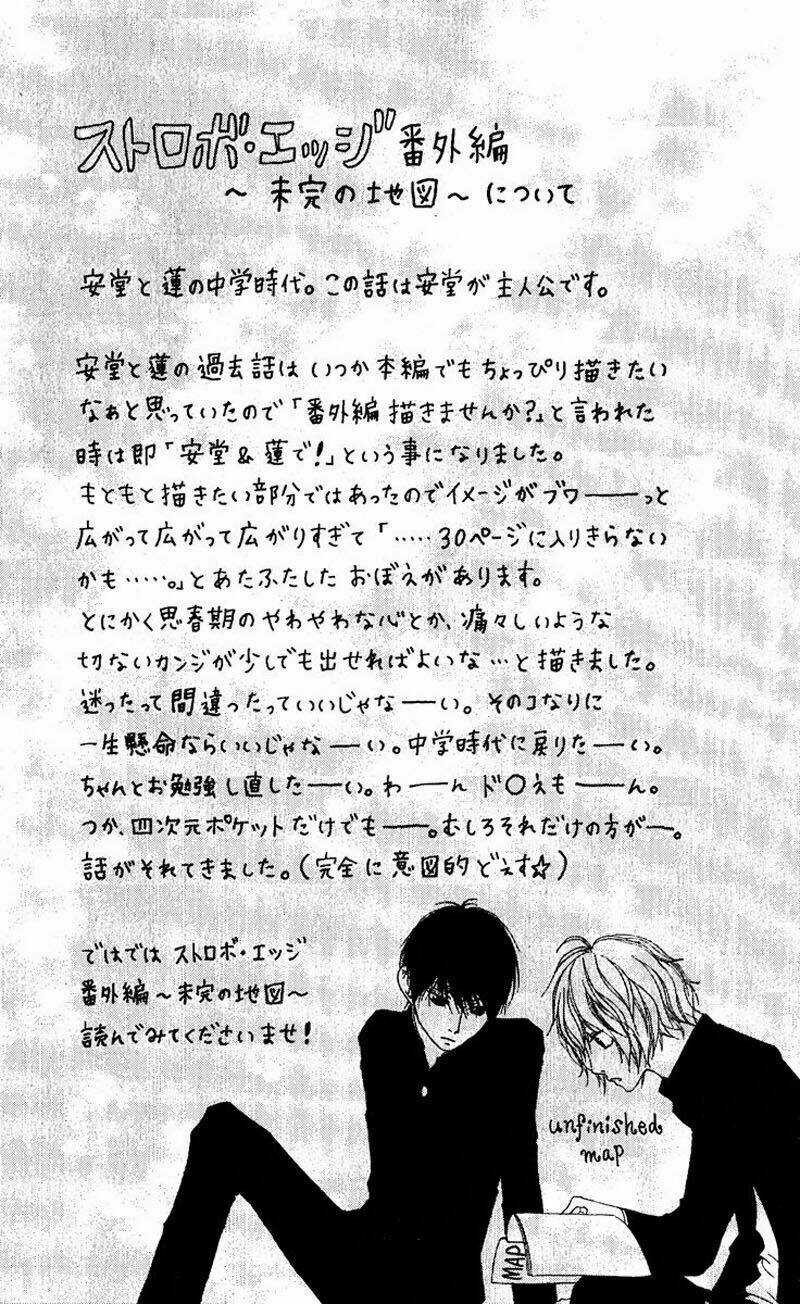 ストロボ・エッジ 番外編
～未完の地図～について
安堂と蓮の中学時代。この話は安堂が主人公です。
安堂と蓮の過去話は いつか本編でもちょっぴり描きたい
なぁと思っていたので「番外編描きませんか?」と言われた
時は即「安堂&蓮で!」という事になりました。
もともと描きたい部分ではあったのでイメージがブワーーーっと
広がって広がって広がりすぎて「……30ページに入りきらない
かも……。」とあたふたした おぼえがあります。
とにかく思春期のやわやわな心とか、痛々しいような
切ないカンジが少しでも出せればよいな…と描きました。
迷ったって間違ったっていいじゃなーーい。そのコなりに
一生懸命ならいいじゃなーーい。中学時代に戻りたーーい。
ちゃんとお勉強し直したーーい。わーーん ド〇えもーーん。
つか、四次元ポケットだけでもーー。むしろそれだけの方がー。
話がそれてきました。(完全に意図的どぇす☆)
ではでは ストロボ・エッジ
番外編～未完の地図～
読んでみてくださいませ!
unfinished
map
MAP